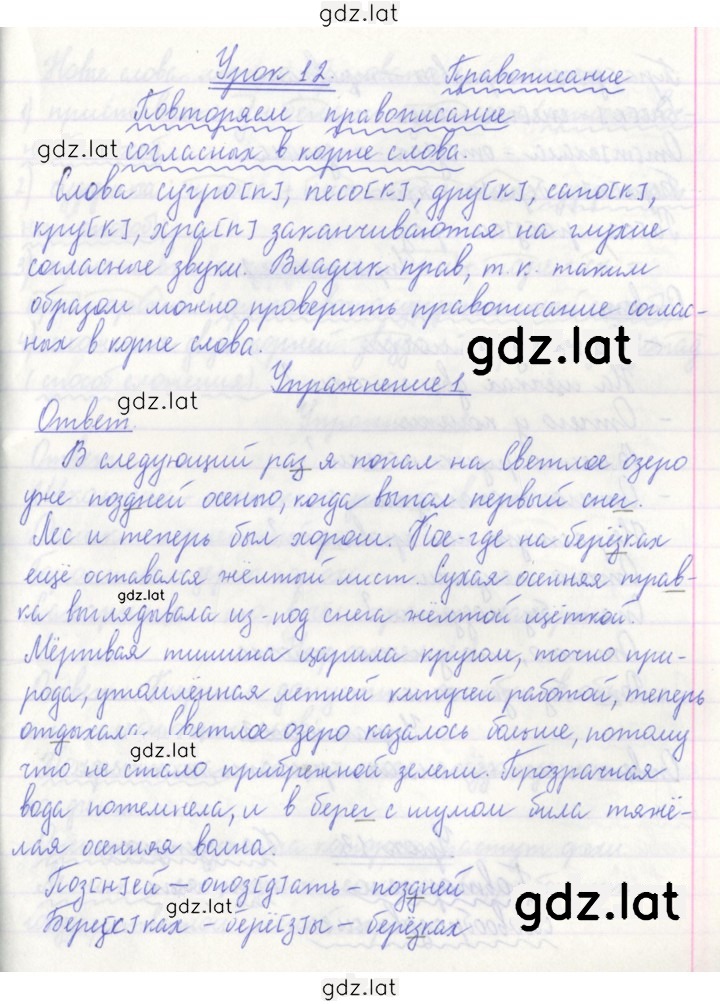 gdz.lat
Урок 12. Правописание
Повторяем правописание
gdz.lat согласных в корне слова.
Слова сугро[п], песо[к], дру[к], сапо[к],
кру[к], хра[п] заканчиваются на глухие
согласные звуки. Владик прав, т. к. таким
образом можно проверить правописание соглас-
ных в корне слова. gdz.lat
Упражнение 1
gdz.lat
Ответ.
В следующий раз я попал на Светлое озеро
уже поздней осенью, когда выпал первый снег.
Лес и теперь был хорош. Кое-где на берёзках
ещё оставался жёлтый лист. Сухая осенняя трав-
gdz.lat
ка выглядывала из-под снега жёлтой щёткой.
Мёртвая тишина царила кругом, точно при-
рода, утомлённая летней кипучей работой, теперь
отдыхал Светлое озеро казалось больше, потому
gdz.lat
что не стало прибрежной зелени. Прозрачная
вода потемнела, и в берег с шумом била тяжё-
лая осенняя волна.
Поз[н]ей – опоз[д]ать – поздней
gdz.lat gdz.lat
Бере[с]ках – берё[з]ы – берёзках
gdz.lat